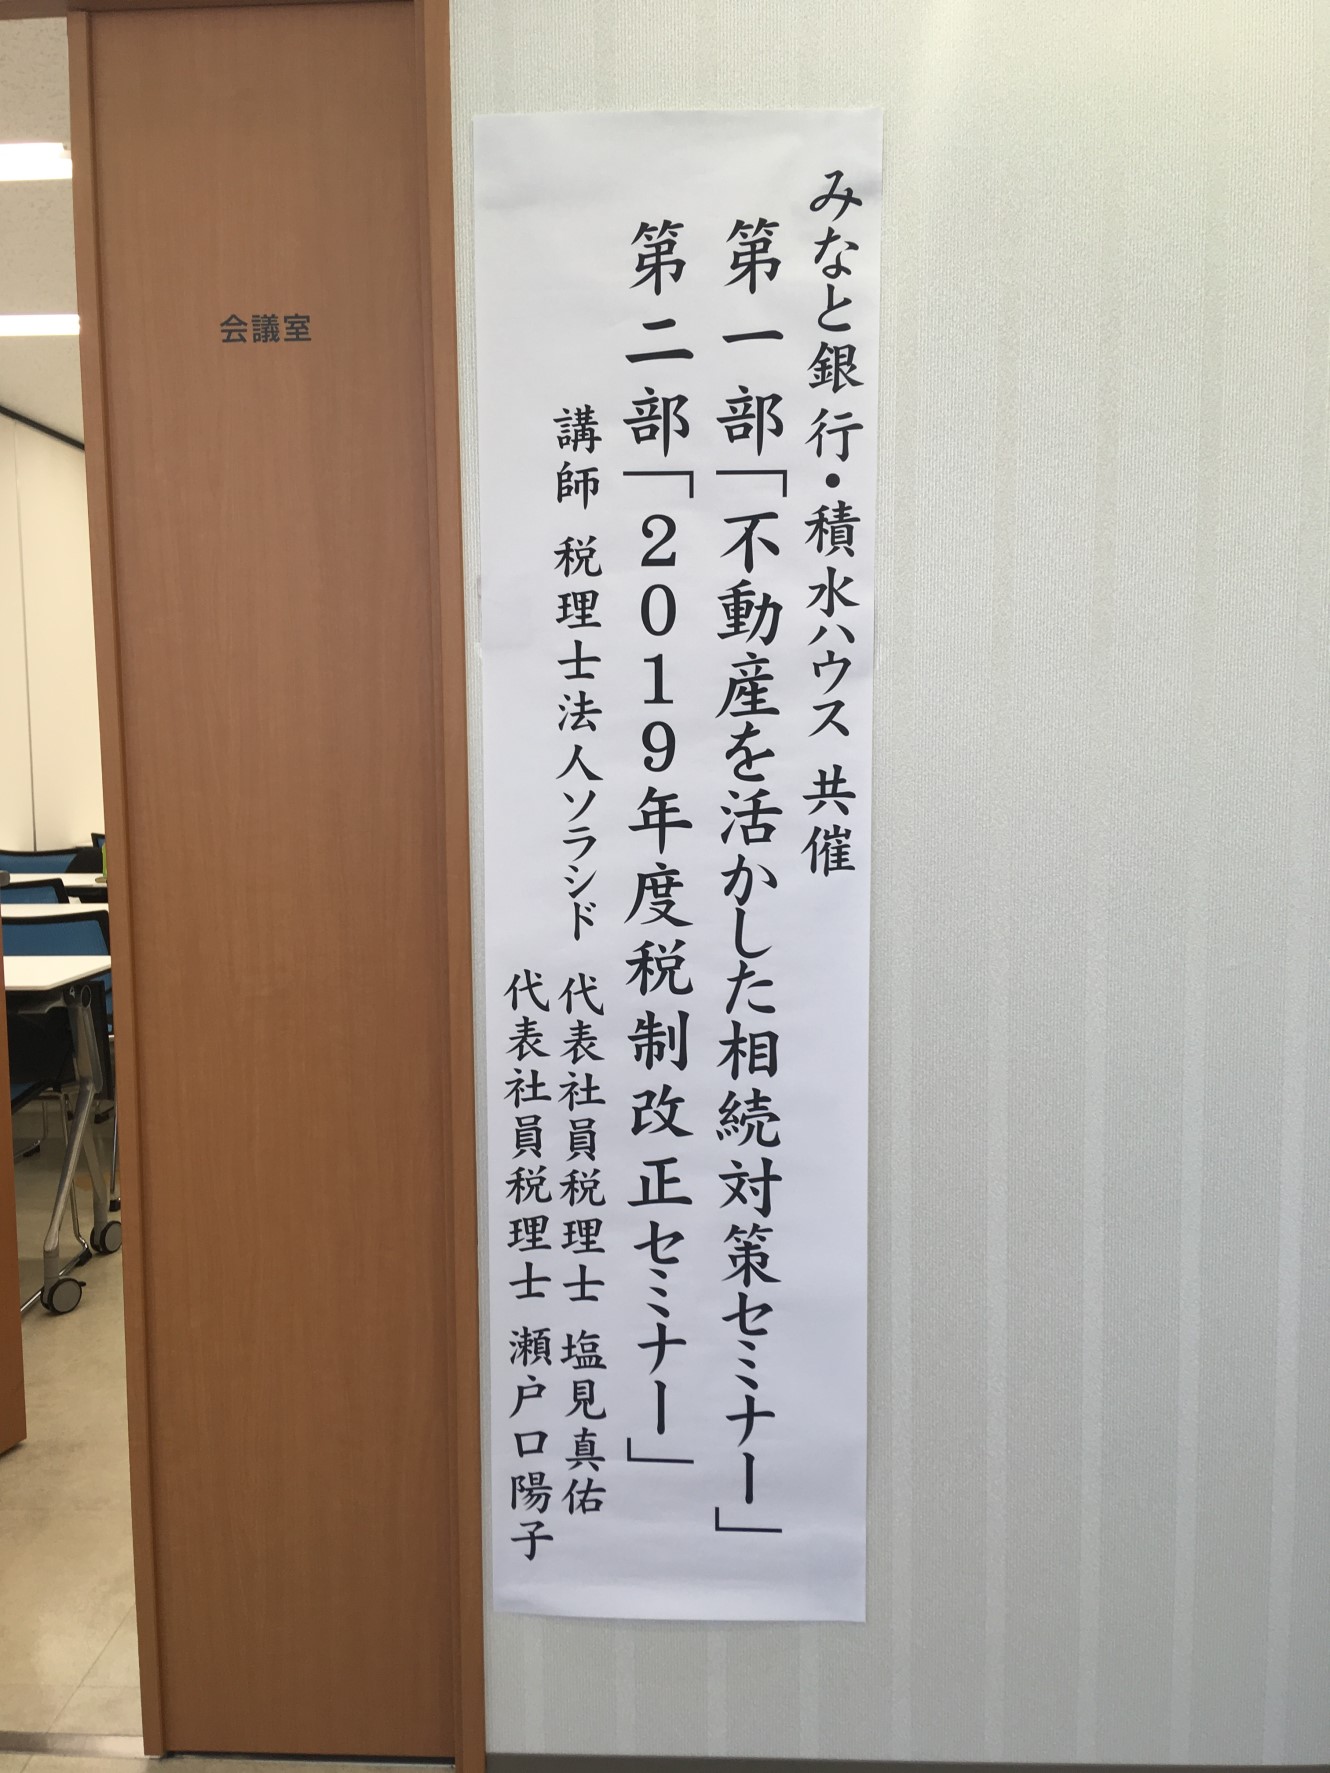 みなと銀行・積水ハウス 共催
第一部「不動産を活かした相続対策セミナー」
第二部「2019年度税制改正セミナー」
講師 税理士法人ソラシド 代表社員税理士 塩見真佑
代表社員税理士 瀬戸口陽子
会議室